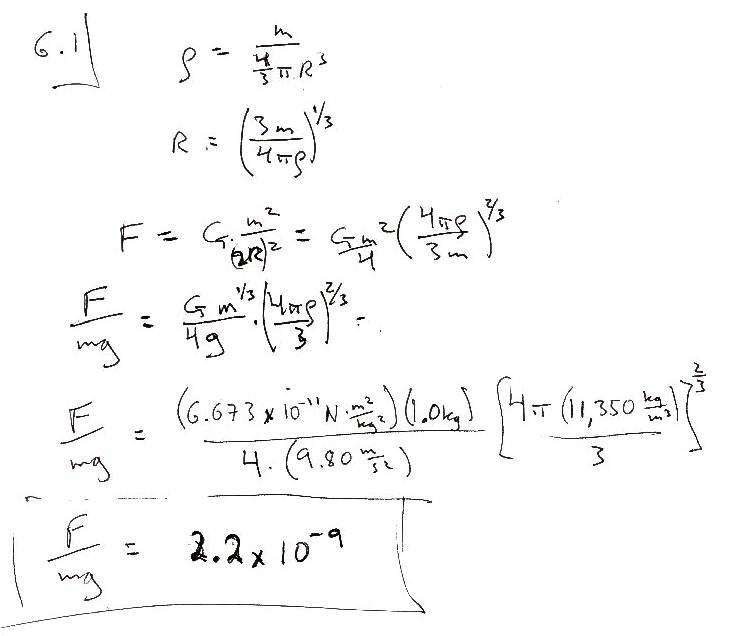 6.1
ρ = m / (4/3 π R³)
R = (3m / 4πρ)^(1/3)
F = G · m² / (2R)² = Gm²/4 (4πρ / 3m)^(2/3)
F/mg = G m^(1/3) / 4g · (4πρ / 3)^(2/3) =
F/mg = (6.673 x 10⁻¹¹ N · m²/kg²)(1.0kg) / 4 · (9.80 m/s²) [4π (11,350 kg/m³) / 3]^(2/3)
F/mg = 2.2 x 10⁻⁹